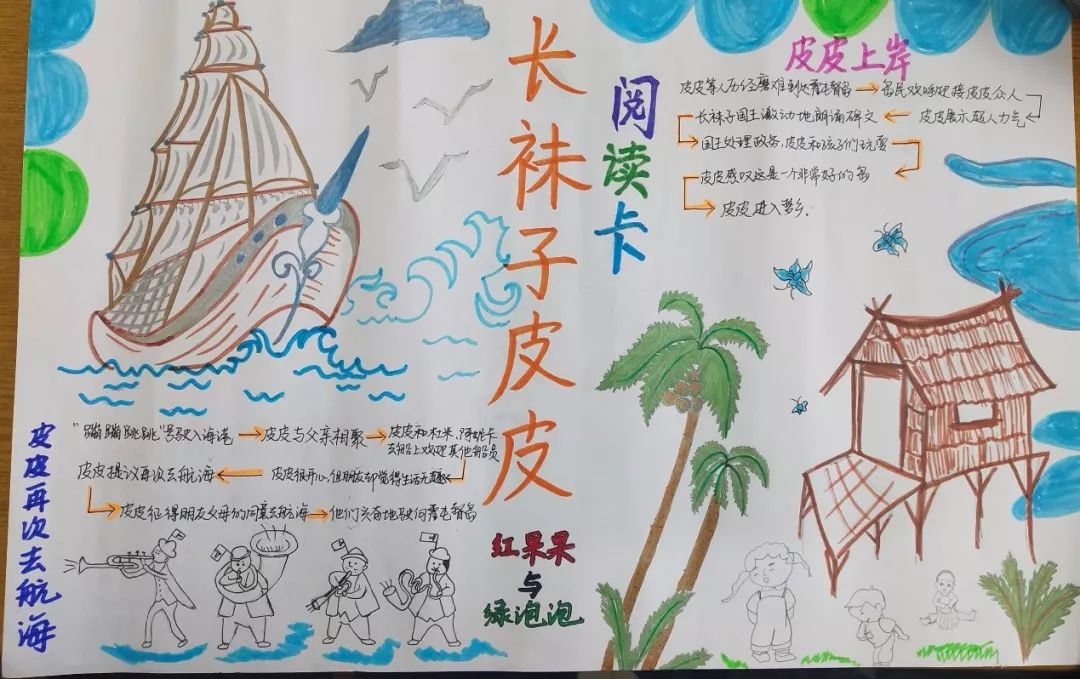 长袜子皮皮
阅读卡
皮皮上岸
皮皮等人历经磨难到达霍屯督岛→岛民欢呼迎接皮皮众人
长袜子国王激动地朗诵碑文←皮皮展示超人力气
国王处理政务，皮皮和孩子们玩耍
皮皮感叹这是一个非常好的岛
皮皮进入梦乡.
皮皮再次去航海
“蹦蹦跳跳”号驶入海港→皮皮与父亲相聚→皮皮和杜米、阿妮卡
去船上欢迎其他船员
皮皮提议再次去航海←皮皮很开心,但朋友却觉得生活无趣
皮皮征得朋友父母的同意去航海→他们兴奋地驶向霍屯督岛
红果果
与
绿泡泡